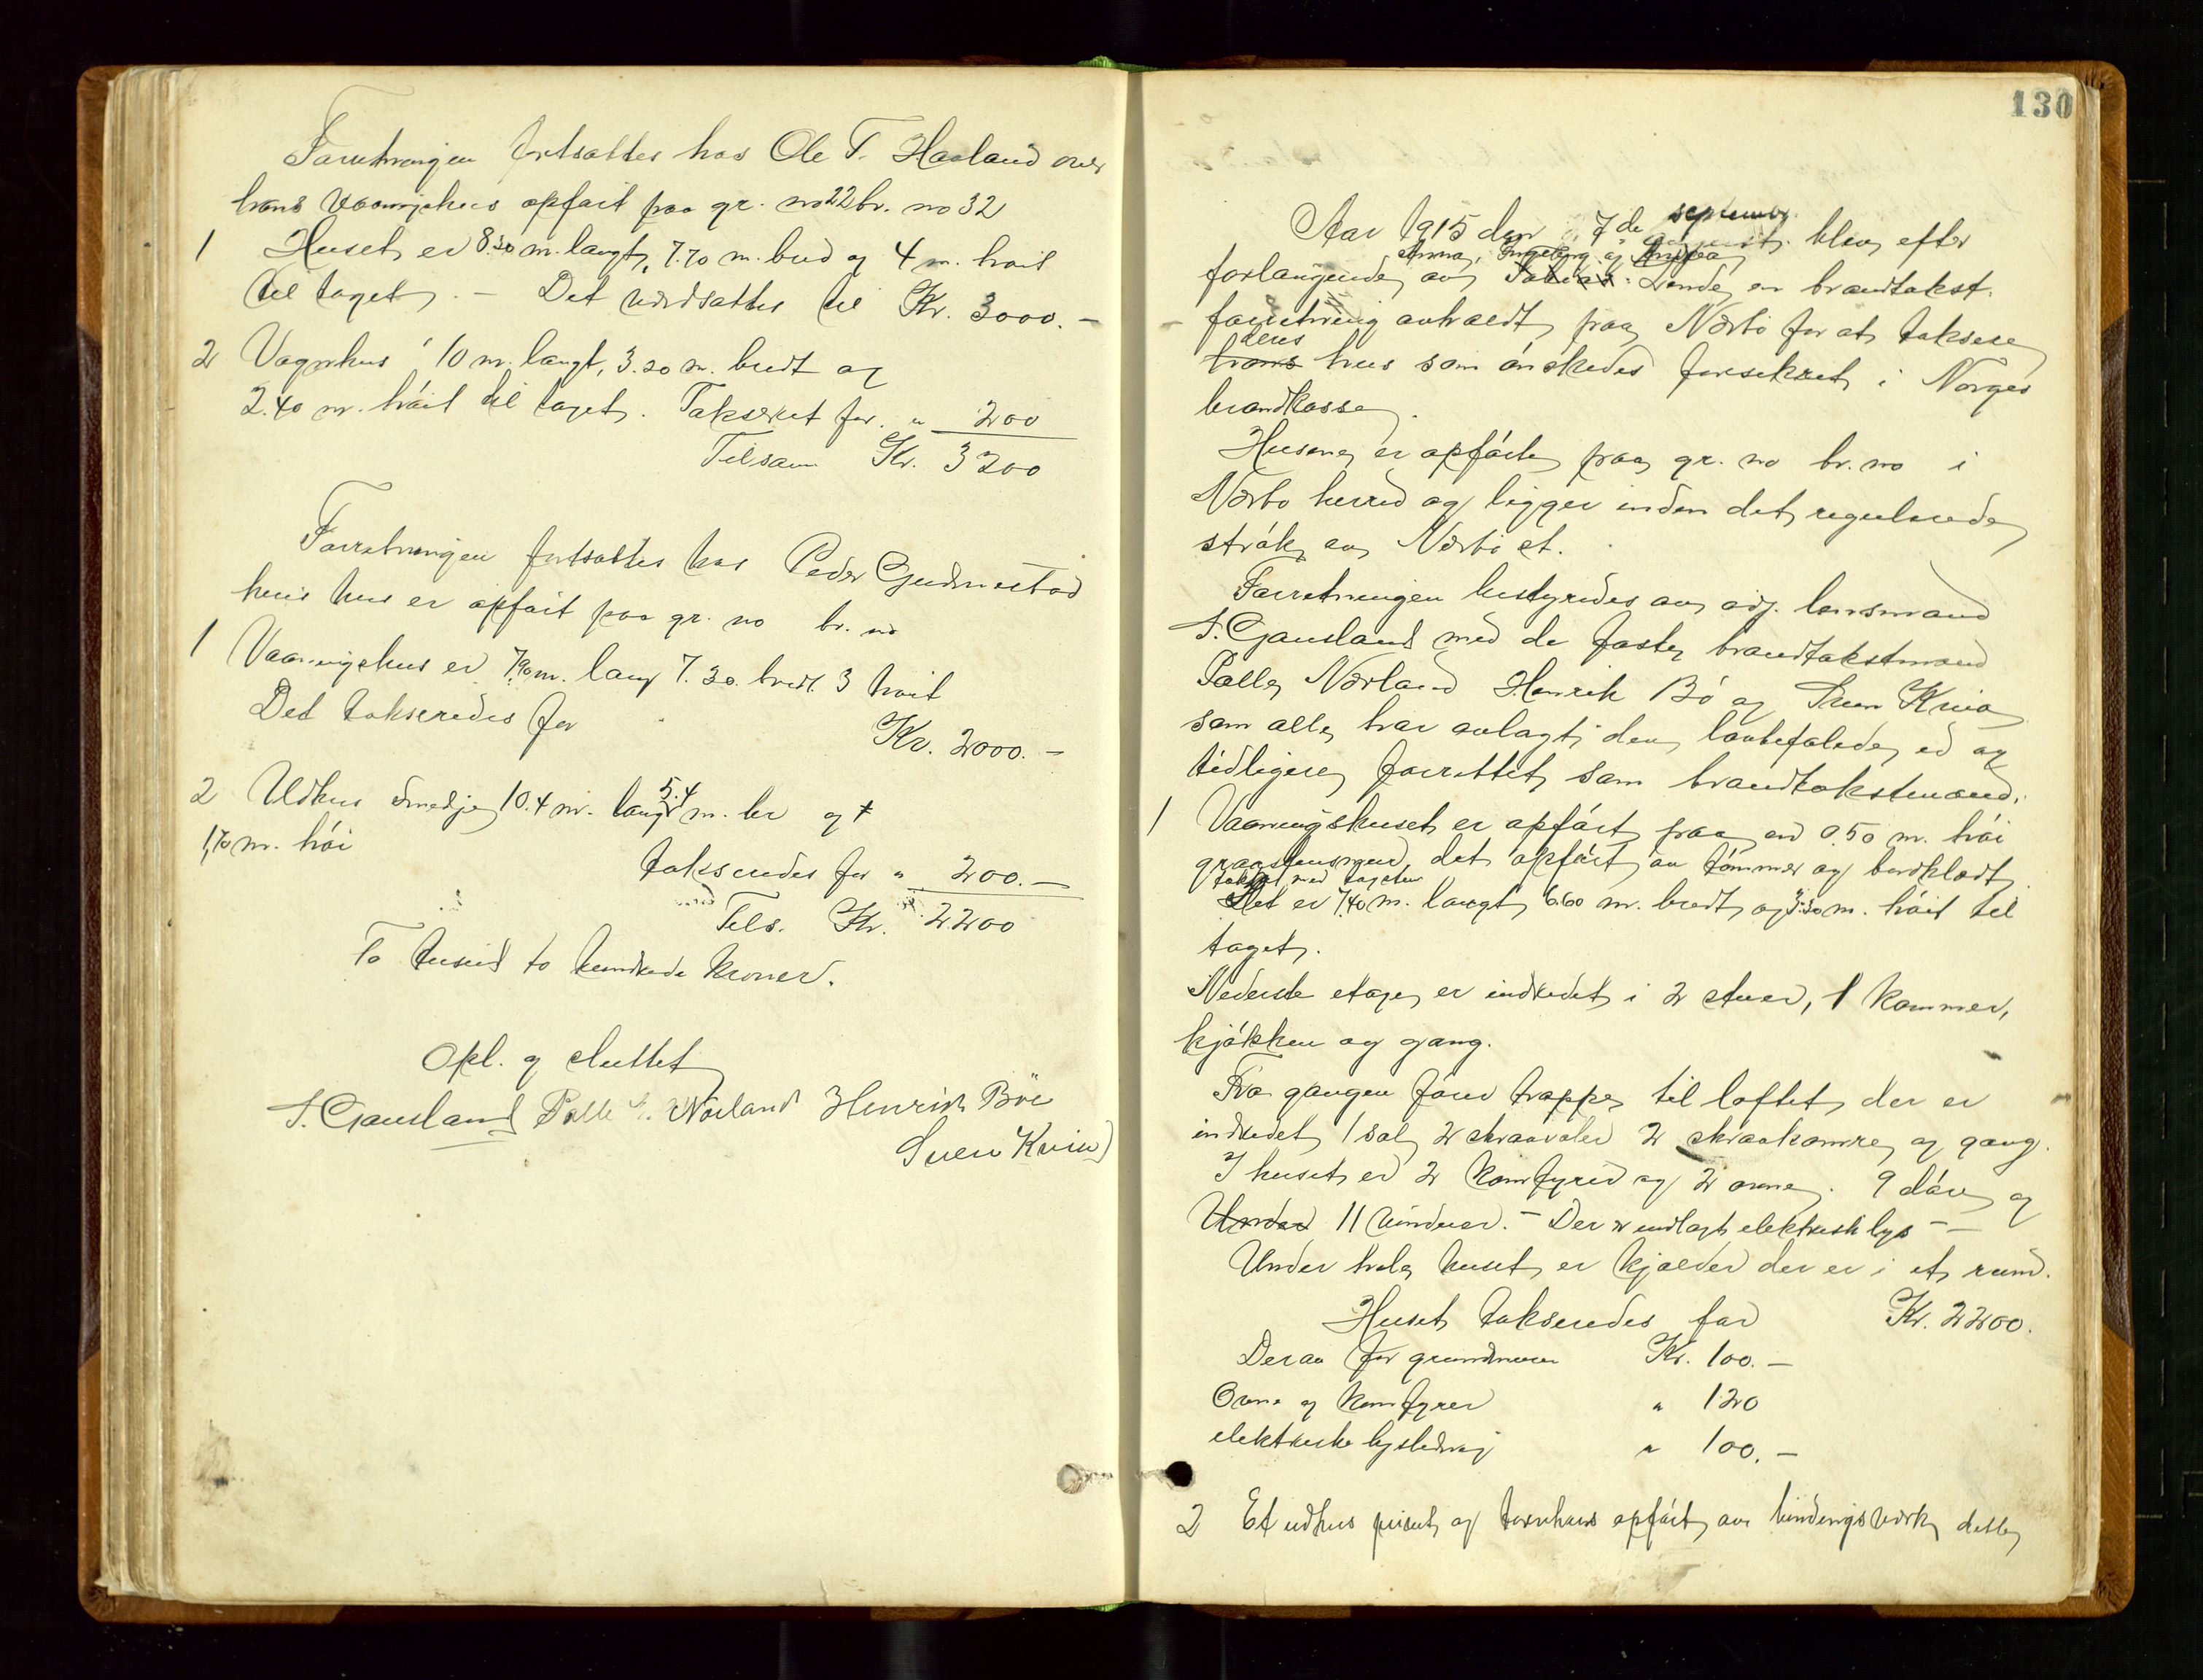 Forretningen fortsattes hos Ole T. Haaland over
hans vaaningshus opført paa gr. no 22 br. no 32
1 Huset er 8.30 m. langt, 7.70 m. bred og 4 m. høit
til taget. – Det værdsattes til Kr. 3000.–
2 Vognhus 10 m. langt, 3.20 m. bredt og
2.40 m. høit til taget. Takseret for " 200
Tilsam Kr. 3200
Forretningen fortsattes hos Peder Gudmestad
hvis hus er opført paa gr. no br. no
1 Vaaningshus er 7,90 m. lang 7.30. bredt. 3 høit
Det takseredes for
Kr. 2000.–
2 Udhus Smedje 10.4 m. langt 5.4 m. br og
1,70 m. høi
takseredes for " 200.–
Tils. Kr. 2200
To tusind to hundrede kroner.
Opl. og sluttet
T. Gausland Palle Nærland Henrik Böe
Sven Kviu
130
Aar 1915 den 7de september blev efter
forlangende av Anna, Ingeborg og Andrea Lende en brandtakst
forretning avholdt paa Nærbø for at taksere
hans deres hus som ønskedes forsikret i Norges
brandkasse.
Husene er opførte paa gr. no br. no i
Nærbo herred og ligger inden det regulerede
strøk av Nærbø st.
Forretningen bestyredes av adj. lensmand
T. Gausland med de faste brandtakstmænd
Palle Nærland Henrik Bø og Sven Kvia
som alle har avlagt den lovbefalede ed og
tidligere forrettet som brandtakstmænd.
1 Vaaningshuset er opført paa en 0.50 m. høi
graastensmur, det opført av tømmer og bordklædt
tækket med tagsten
Det er 7,40 m. langt 6.60 m. bredt og 3.30 m. høit til
taget.
Nederste etage er indredet i 2 stuer, 1 kammer,
kjøkken og gang.
Fra gangen fører trappe til loftet der er
indredet 1 sal 2 skraavaler 2 skraakamre og gang.
I huset er 2 komfyrer og 2 ovne. 9 døre og
Under 11 vinduer. – Der er indlagt elektrisk lys –
Under hele huset er kjælder der er i et rum.
Huset takseredes for Kr. 2200.
Derav for grundmuren Kr. 100.–
Ovne og komfyrer " 120
elektriske lysledning " 100.–
2 Et udhus priset og tørvhus opført av bindingsværk dette